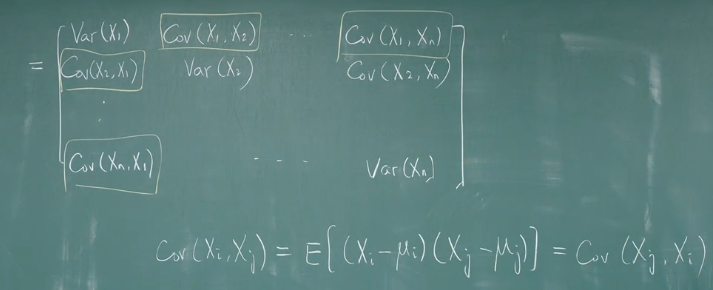 Var(X₁) Cov(X₁, X₂) ... Cov(X₁, Xₙ)
= Cov(X₂, X₁) Var(X₂) Cov(X₂, Xₙ)
:
Cov(Xₙ, X₁) ... Var(Xₙ)
Cov(Xᵢ, Xⱼ) = E[(Xᵢ-μᵢ)(Xⱼ-μⱼ)] = Cov(Xⱼ, Xᵢ)